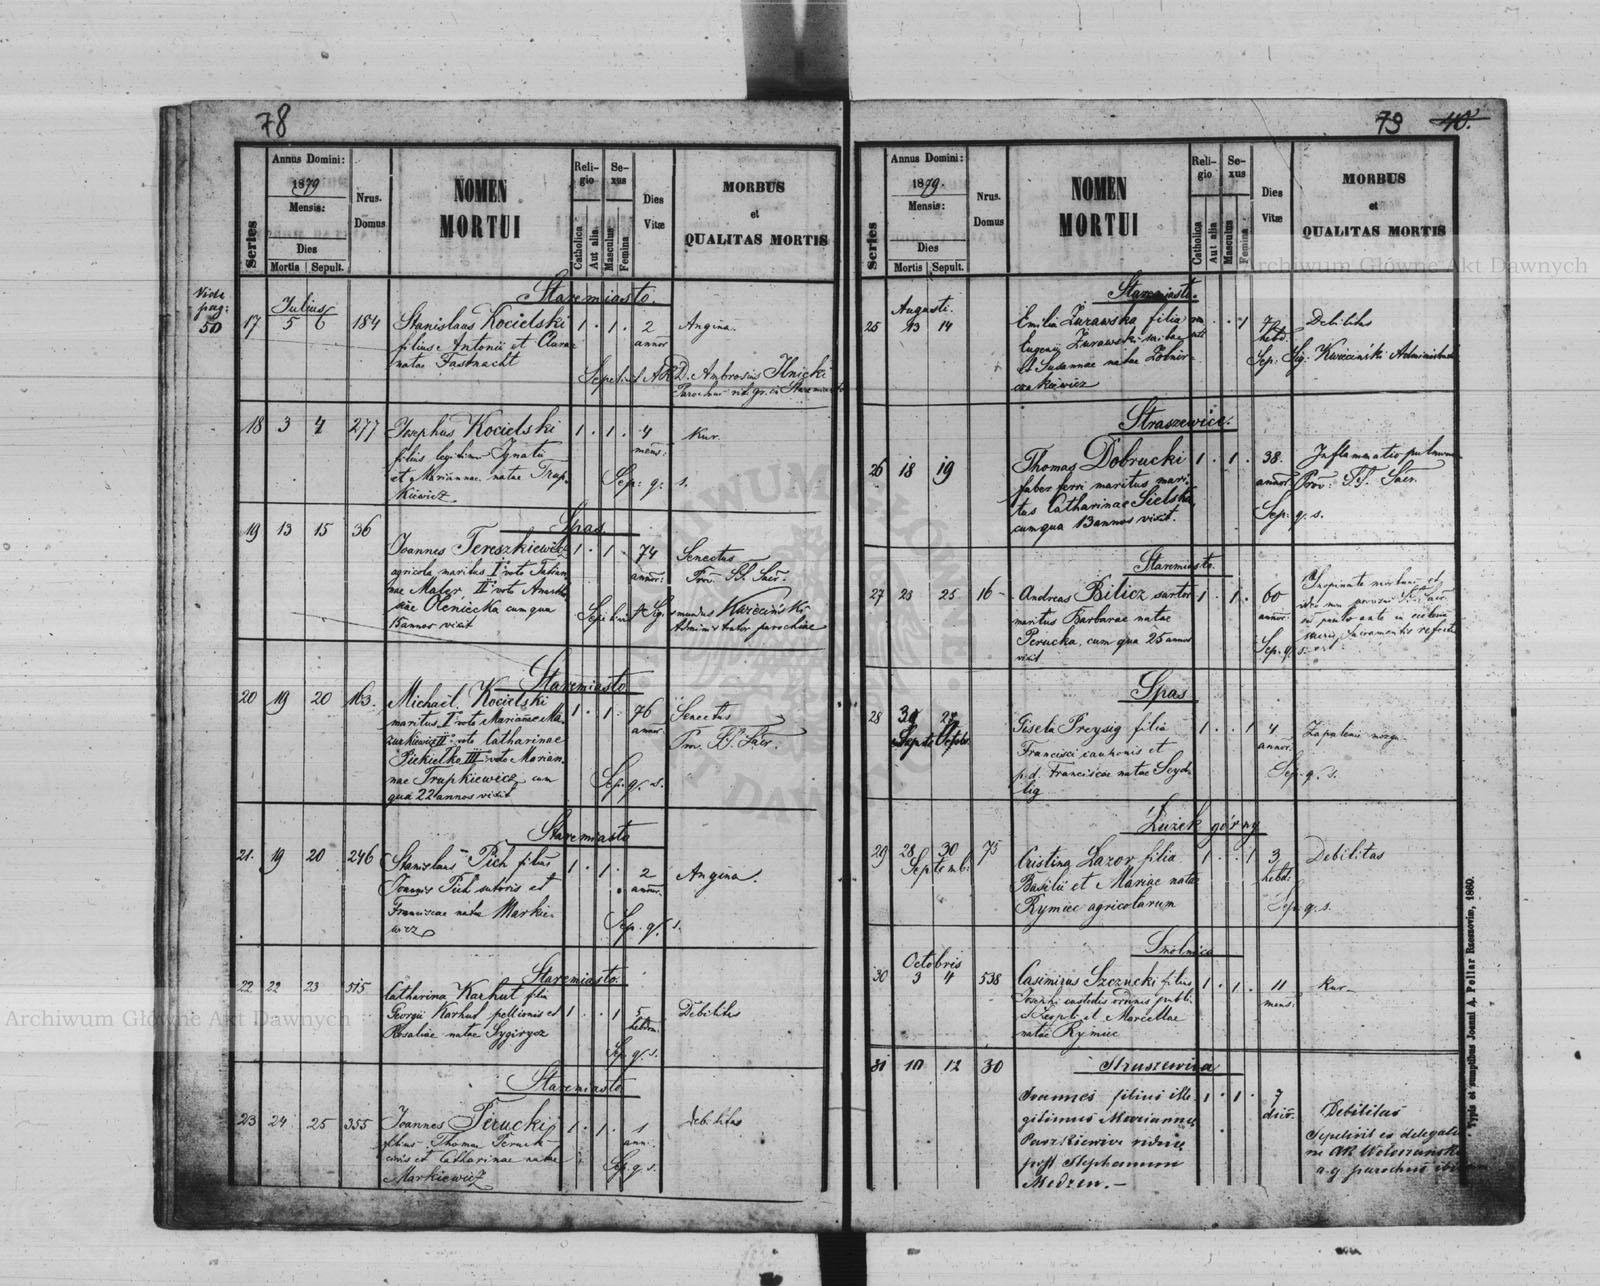 78
Annus Domini:
1879
Mensis:
Dies
Mortis
Sepult.
Series
Nrus.
Domus
NOMEN
MORTUI
Religio
Catholica
Aut alia
Sexus
Masculus
Femina
Dies
Vitæ
MORBUS
et
QUALITAS MORTIS
Vide
pag:
50
Staremiasto.
Julius
17 5 6 184 Stanislaus Kocielski 1 . 1 . 2 Angina.
filius Antonii et Clarae annor
natae Fastnacht
Sepelivit A.R.D. Ambrosius Ilnicki
Parochus rit. gr. in Staremiasto
18 3 4 277 Josephus Kocielski 1 . 1 . 4 Kur.
filius legitimus Ignatii mens:
et Mariannae natae Trup-
kiewicz Sep: q: s.
Spas
19 13 15 36 Joannes Tereszkiewicz 1 . 1 . 74 Senectus
agricola maritus I voto annor: Prov. SS. Sacr.
nae Mater, II voto
Oleniecka cum qua
15 annos vixit
Sepelivit Sigismundus Kwieciński
Administrator parochiae
Staremiasto
20 19 20 163. Michael Kocielski 1 . 1 . 76 Senectus
maritus I voto Mariannae Ma- annor Prov. SS. Sacr.
zurkiewicz II voto Catharinae
Piekielko III voto Marian-
nae Trupkiewicz cum
qua 22 annos vixit Sep. q. s.
Staremiasto
21. 19 20 246 Stanislaus Pich filius 1 . 1 . 2 Angina.
Joannis Pich sutoris et annor.
Franciscae natae Markie-
wicz Sep. q. s.
Staremiasto.
22 22 23 515 Catharina Karhut filia
Georgii Karhut pellionis et 1 . . 1 5 Debilitas
Rosaliae natae Sygirycz hebdm.
Sep. q. s.
Staremiasto
23 24 25 355 Joannes Perucki 1 . 1 . 1 Debilitas
filius Thomae Peruck ann.
civis et Catharinae natae
Markiewicz Sep. q. s.
79 40.
Annus Domini:
1879.
Mensis:
Dies
Mortis
Sepult.
Series
Nrus.
Domus
NOMEN
MORTUI
Religio
Catholica
Aut alia
Sexus
Masculus
Femina
Dies
Vitæ
MORBUS
et
QUALITAS MORTIS
Staremiasto.
Augusti.
25 13 14 Emilia Żurawska filia . . 1 7 Debilitas
Eugenii Żurawski hebd.
et Susannae natae Żołnir-
czakiewicz
Sep. Sig. Kwieciński Administrator
Straszewice.
26 18 19 Thomas Dobrucki 1 . 1 . 38. Inflammatio pulmonum
faber ferri maritus mari- annor. Prov: SS. Sacr.
tus Catharinae Sielska,
cum qua 13 annos vixit. Sep. q. s.
Staremiasto.
27 23 25 16 Andreas Bilicz sartor 1 . 1 . 60
maritus Barbarae natae annor:
Perucka, cum qua 25 annos
vixit Sep. q. s.
Spas
28 Gisela Preysig filia 1 . . 1 4
Francisci cauponis et annor.
p.d. Franciscae natae Seyd-
lig Sep. q. s.
Łużek górny
29 28 30 75 Cristina Lazor filia 1 . . 1 3 Debilitas
Septemb: Basilii et Mariae natae hebd:
Rymiec agricolarum Sep. q. s.
Smolnica
Octobris
30 3 4 538 Casimirus Szczucki filius 1 . 1 . 11 Kur.
Josephi custodis ordinis publi- mens.
et Marcellae
natae Rymiec
Straszewice
31 10 12 30 Joannes filius ille- 1 . 1 . 7 Debilitas
gitimus Mariannę dier.
Paszkiewicz viduę
post Stephanum
Medzen.
Sepelivit ex delegatio-
ne AR Wołoszański
a. g. parochus
Typis et sumptibus Joanni A. Pellar Rzeszoviæ, 1860.
Archiwum Główne Akt Dawnych
Archiwum Główne Akt Dawnych
ARCHIWUM GŁÓWNE
AKT DAWNYCH